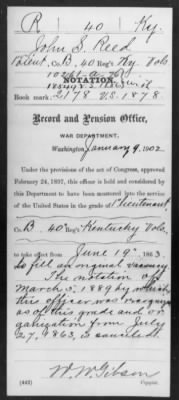 R 40 Ky.
John S. Reed
Lieut, Co. B, 40 Reg't Ky. Vols
NOTATION.
Book mark: 2178 V.S. 1878.
Record and Pension Office,
WAR DEPARTMENT,
Washington, January 9, 1902
Under the provisions of the act of Congress, approved
February 24, 1897, this officer is held and considered by
this Department to have been mustered into the service
of the United States in the grade of Lieutenant,
Co. B, 40 Reg't Kentucky Vols.
to take effect from June 19, 1863,
to fill an original vacancy
The notation of
March 5, 1889 by which
this officer was recognized
as of this grade and or
ganization from July
27, 1863, is canceled.
W. W. Gibson
(442) Copyist.